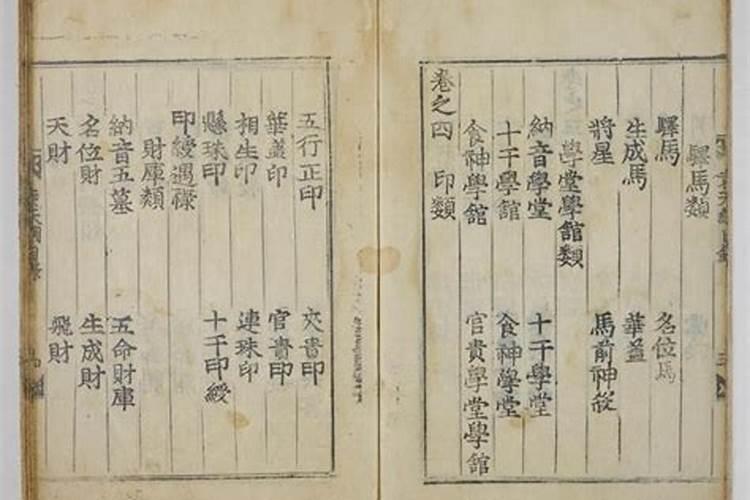 驛馬類
驛馬 名位馬
生成馬 華蓋
將星 馬前神殺
學堂學館類
納音學堂 十干學堂
十干學館 食神學堂
食神學館 官貴學堂學館
卷之四 印類
五行正印 交貴印
華蓋印 官貴印
相生印 連珠印
懸珠印 十干印綬
印綬遇祿
財庫類
納音五墓 五命財庫
名位財 生成財
天財 飛財